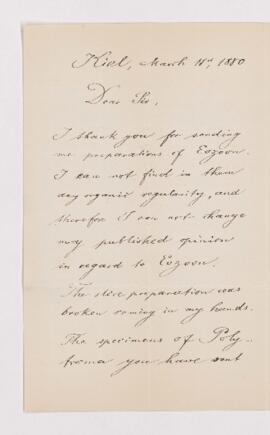 Kiel, March 18th, 1880
Dear Sir,
I thank you for sending
me preparations of Eozoon.
I can not find in them
any organic regularity, and
therefore I can not change
my published opinion
in regard to Eozoon.
The slice preparation was
broken coming in my hands.
The specimens of Poly-
trema you have sent